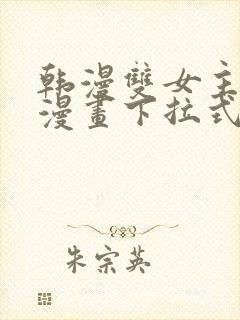 韩漫雙女主
漫畫下拉式
朱宗英